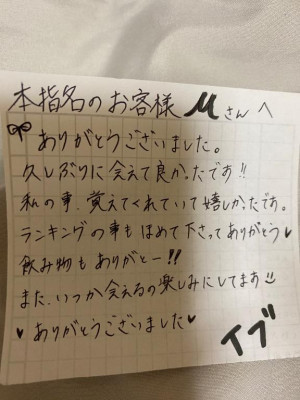 本指名のお客様 Mさんへ
ありがとうございました。
久しぶりに会えて良かったです!!
私の事、覚えてくれていて嬉しかったです。
ランキングの事もほめて下さってありがとう♥
飲み物もありがとー!!
また、いつか会えるの楽しみにしてます!!
♥ありがとうございました♥
イブ